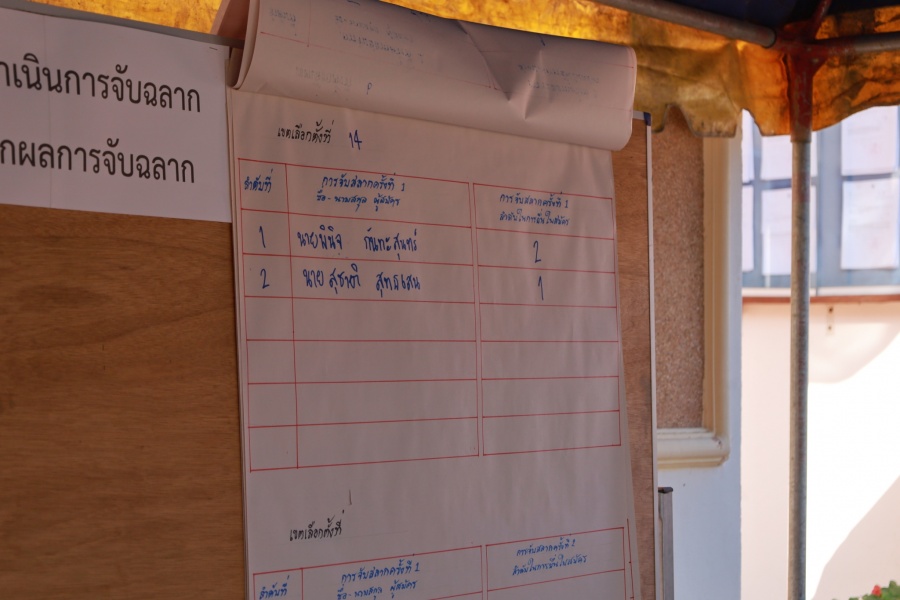 เนินการจับฉลาก
กผลการจับฉลาก
เขตเลือกตั้งที่ 14
ลำดับที่
การจับสลากครั้งที่ 1
ชื่อ - นามสกุล ผู้สมัคร
การจับสลากครั้งที่ 2
ลำดับในการยื่นใบสมัคร
1 นายพินิจ 2
2 นาย สุชาติ สุทธแสน 1
เขตเลือกตั้งที่
ลำดับที่
การจับสลากครั้งที่ 1
ชื่อ - นามสกุล ผู้สมัคร
การจับสลากครั้งที่ 2
ลำดับในการยื่นใบสมัคร